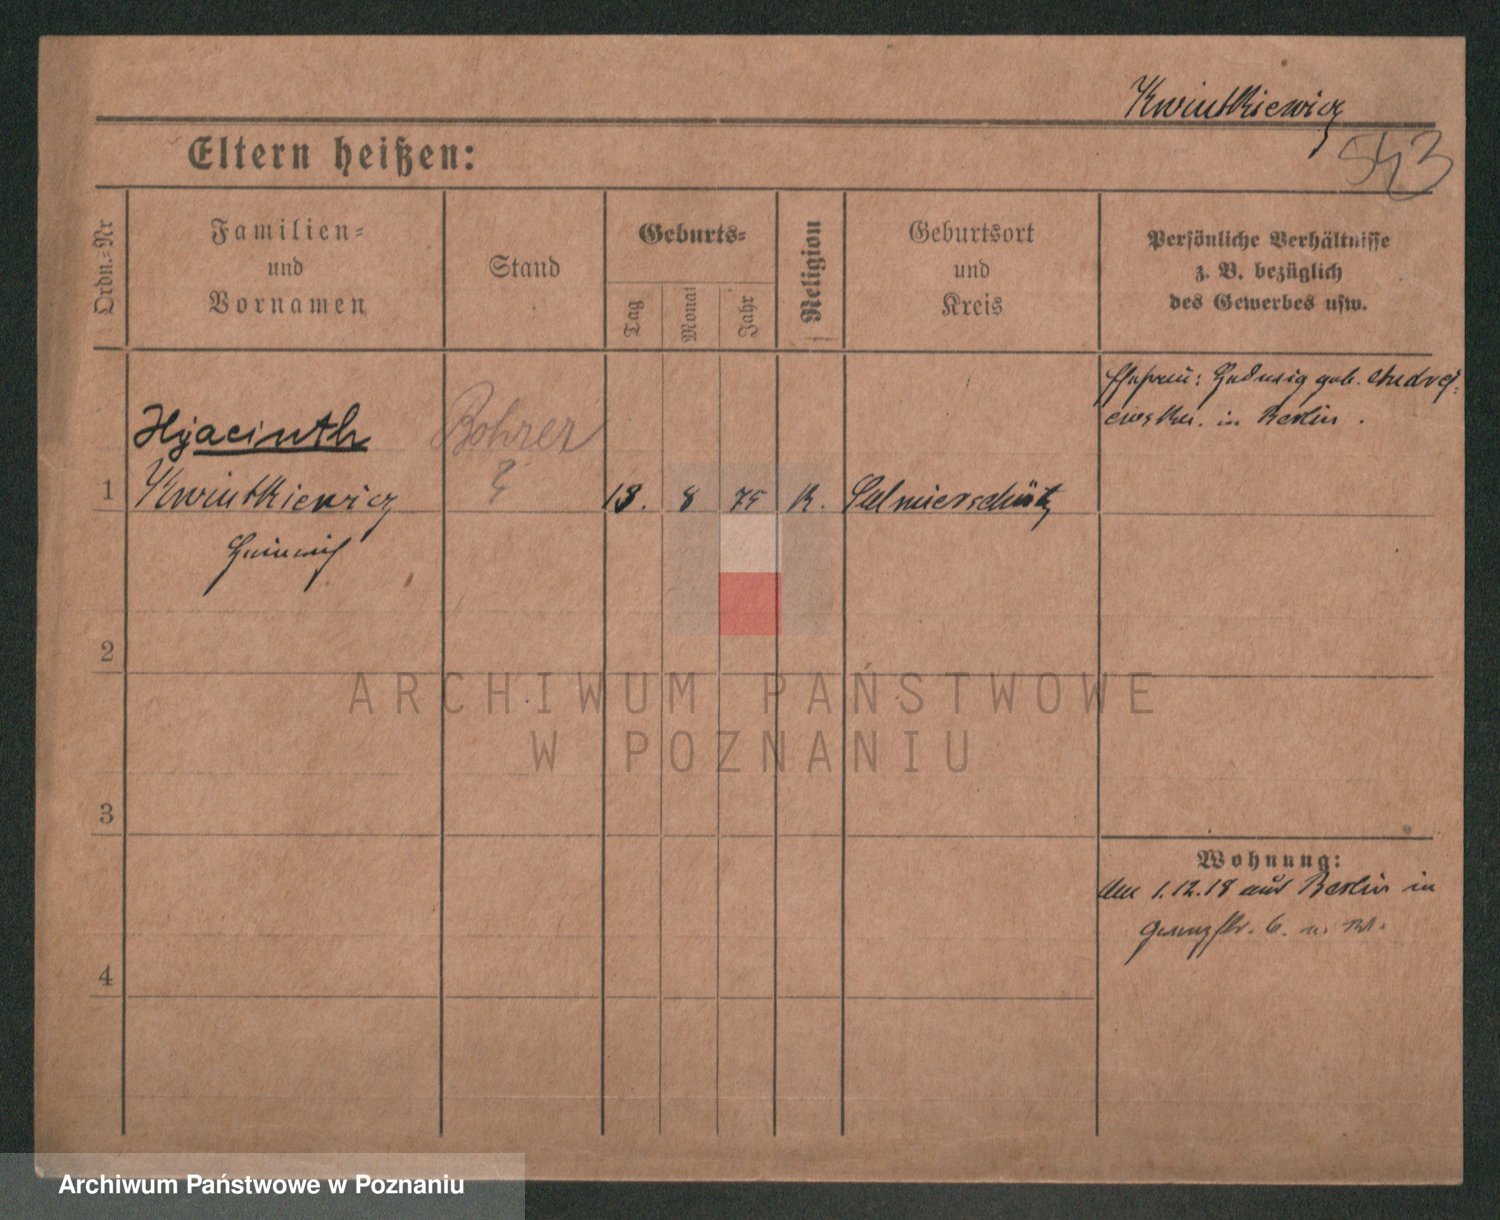 Kwiutkiewicz
543
Eltern heißen:
Ordn.-Nr
Familien-
und
Vornamen
Stand
Geburts-
Tag
Monat
Jahr
Religion
Geburtsort
und
Kreis
Persönliche Verhältnisse
z. B. bezüglich
des Gewerbes usw.
Ehefrau: Hedwig geb. Andrej-
ewska. in Berlin.
Hyacinth
Bohrer
1 Kwiutkiewicz 18. 8 75 K. Salmierschütz
Heinrich
2
3
4
Wohnung:
Am 1.12.18 aus Berlin in
6.
ARCHIWUM PAŃSTWOWE
W POZNANIU
Archiwum Państwowe w Poznaniu